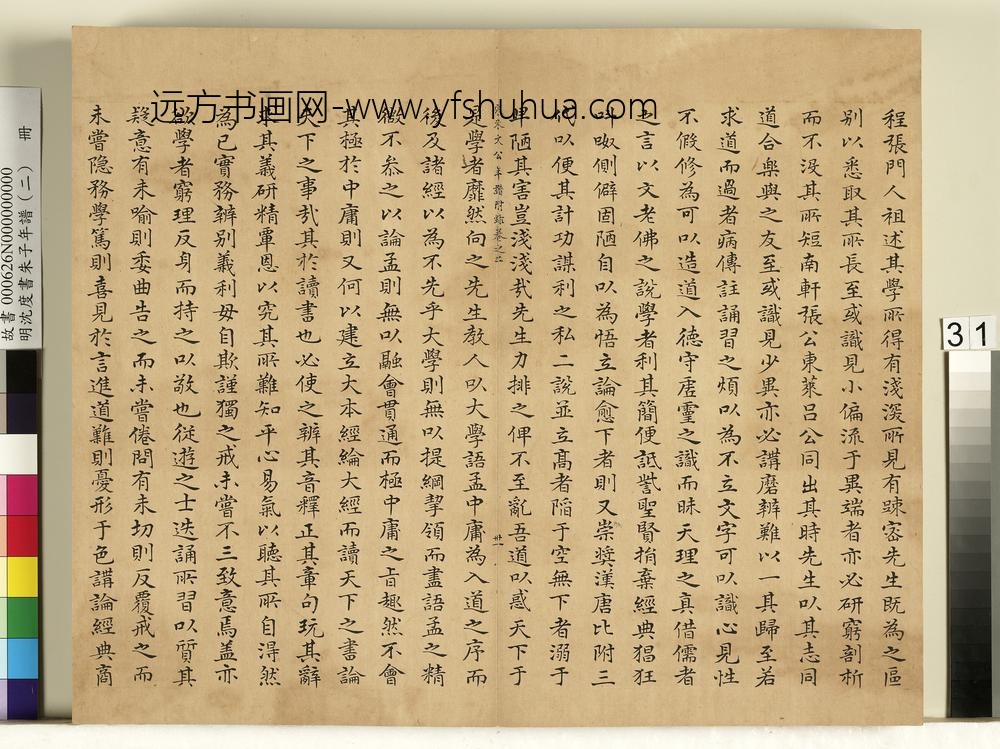 远方书画网-www.yfshuhua.com
程張門人祖述其學所得有淺深所見有疎宻先生既為之區
別以悉取其所長至或識見小偏流于異端者亦必研窮剖析
而不没其所短南軒張公東萊呂公同出其時先生以其志同
道合樂與之友至或識見少異亦必講磨辨難以一其歸至若
求道而過者病傳註誦習之煩以為不立文字可以識心見性
不假修為可以造道入德守虛靈之識而昧天理之真借儒者
之言以文老佛之說學者利其簡便詆訾聖賢捐棄經典猖狂
叫呶側僻固陋自以為悟立論愈下者則又崇奬漢唐比附三
代以便其計功謀利之私二說並立高者陷于空無下者溺于
卑陋其害豈淺淺哉先生力排之俾不至亂吾道以惑天下于
朱文公年譜附錄卷之二
卅一
是學者靡然向之先生教人以大學語孟中庸為入道之序而
後及諸經以為不先乎大學則無以提綱挈領而盡語孟之精
微不叅之以論孟則無以融會貫通而極中庸之旨趣然不會
其極於中庸則又何以建立大本經綸大經而讀天下之書論
天下之事哉其於讀書也必使之辨其音釋正其章句玩其辭
求其義研精覃思以究其所難知平心易氣以聽其所自得然
為己實務辨別義利毋自欺謹獨之戒未嘗不三致意焉盖亦
欲學者窮理反身而持之以敬也從遊之士迭誦所習以質其
疑意有未喻則委曲告之而未嘗倦問有未切則反覆戒之而
未嘗隐務學篤則喜見於言進道難則憂形于色講論經典商
故書 000626N000000000
明沈度書朱子年譜(二) 冊
31